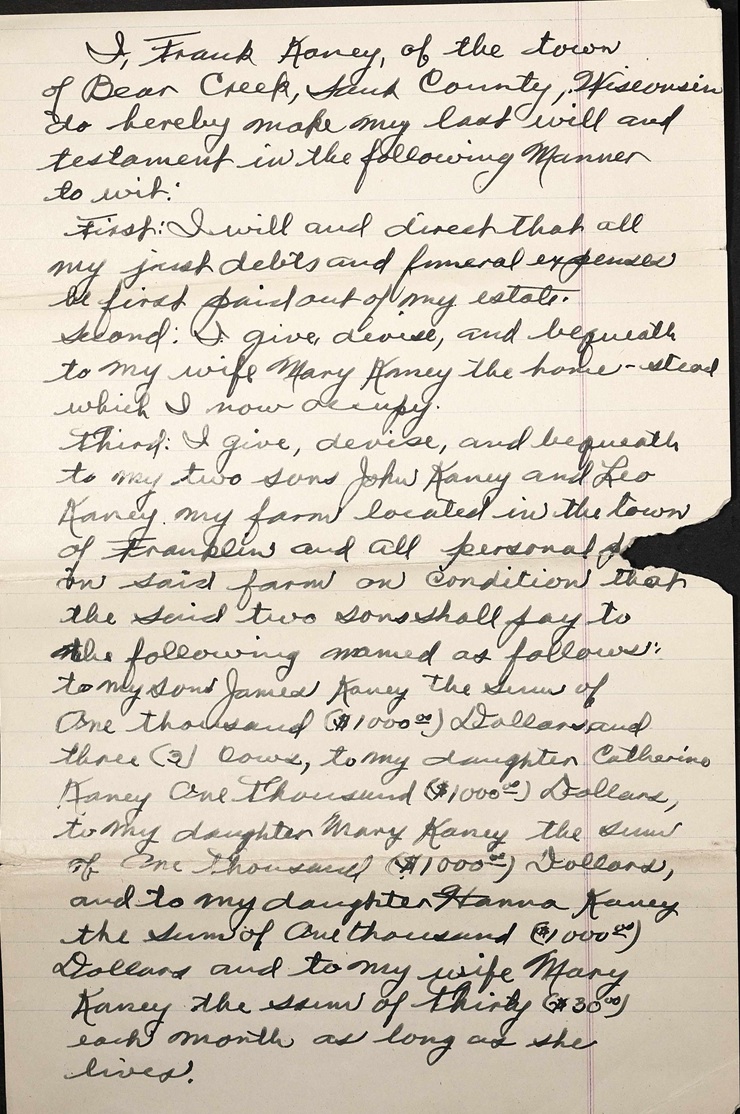 I, Frank Kaney, of the town
of Bear Creek, Sauk County, Wisconsin
do hereby make my last will and
testament in the following Manner
to wit:
First: I will and direct that all
my just debts and funeral expenses
be first paid out of my estate.
Second: I give, devise, and bequeath
to my wife Mary Kaney the home-stead
which I now occupy.
Third: I give, devise, and bequeath
to my two sons John Kaney and Leo
Kaney my farm located in the town
of Franklin and all personal
on said farm on condition that
the said two sons shall pay to
the following named as follows:
to my son James Kaney the sum of
One thousand ($1000.00) Dollars and
three (3) Cows, to my daughter Catherine
Kaney One Thousand ($1000.00) Dollars,
to my daughter Mary Kaney the sum
of One Thousand ($1000.00) Dollars,
and to my daughter Hanna Kaney
the sum of One thousand ($1000.00)
Dollars and to my wife Mary
Kaney the sum of thirty ($30.00)
each month as long as she
lives.